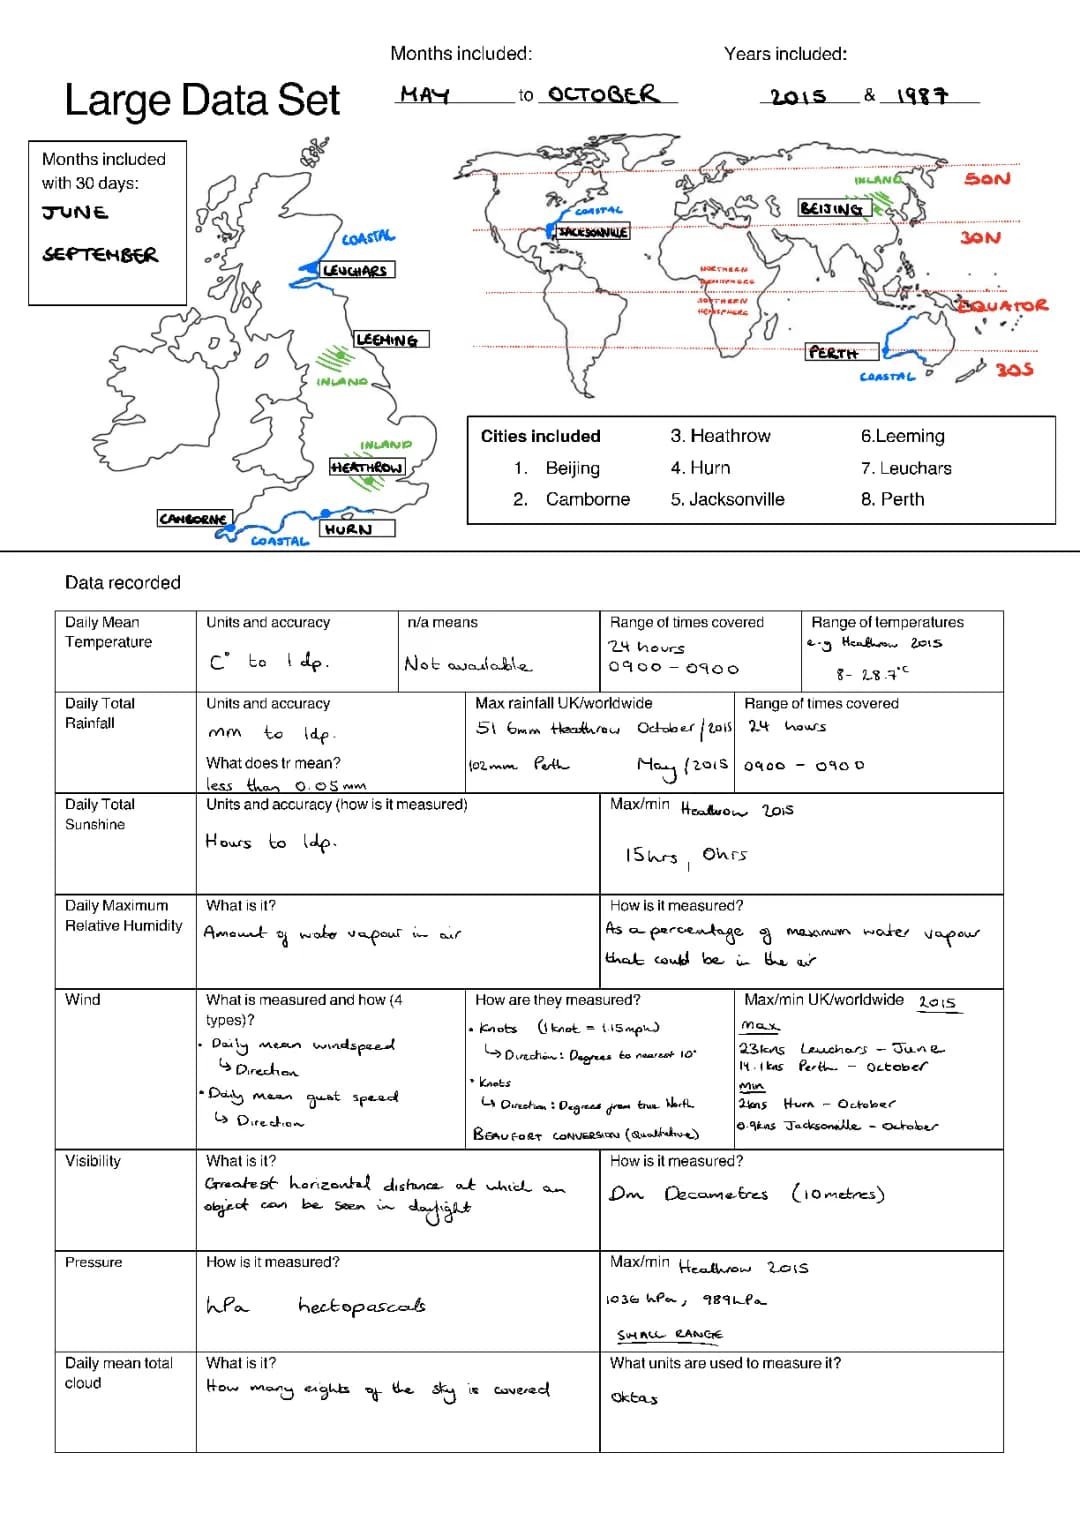 Months included:
Years included:
Large Data Set
MAY to OCTOBER
2015 & 1987
Months included
with 30 days:
JUNE
SEPTEMBER
COASTAL
LEUCHARS
LEEMING
INLAND
INLAND
HEATHROW
CAMBORNE
HURN
COASTAL
INLAND
50N
BEIJING
COASTAL
JACKSONVILLE
30N
NORTHERN
HEMISPHERE
SOUTHERN
HEMISPHERE
EQUATOR
PERTH
COASTAL
30S
Cities included
3. Heathrow
6.Leeming
1. Beijing
4. Hurn
7. Leuchars
2. Camborne
5. Jacksonville
8. Perth
Data recorded
Daily Mean
Temperature
Units and accuracy
C° to 1 dp.
n/a means
Not available
Range of times covered
24 hours
0900 - 0900
Range of temperatures
e.g Heathrow 2015
8- 28.7°C
Daily Total
Rainfall
Units and accuracy
mm to 1dp.
What does tr mean?
less than 0.05mm
Max rainfall UK/worldwide
51 6mm Heathrow October/2015
102mm Perth May/2015
Range of times covered
24 hours
0900 - 0900
Daily Total
Sunshine
Units and accuracy (how is it measured)
Hours to 1dp.
Max/min Heathrow 2015
15hrs, 0hrs
Daily Maximum
Relative Humidity
What is it?
Amount of water vapour in air
How is it measured?
As a percentage of maximum water vapour
that could be in the air
Wind
What is measured and how (4
types)?
• Daily mean windspeed
↳ Direction
• Daily mean gust speed
↳ Direction
How are they measured?
• Knots (1knot = 1.15mph)
↳ Direction: Degrees to nearest 10°
• Knots
↳ Direction: Degrees from true North
BEAUFORT CONVERSION (Qualitative)
Max/min UK/worldwide 2015
Max
23kns Leuchars - June
14.1kns Perth - October
Min
2kns Hurn - October
0.9kns Jacksonville - October
Visibility
What is it?
Greatest horizontal distance at which an
object can be seen in daylight
How is it measured?
Dm Decametres (10metres)
Pressure
How is it measured?
hPa hectopascals
Max/min Heathrow 2015
1036 hPa, 989hPa
SMALL RANGE
Daily mean total
cloud
What is it?
How many eights of the sky is covered
What units are used to measure it?
Oktas